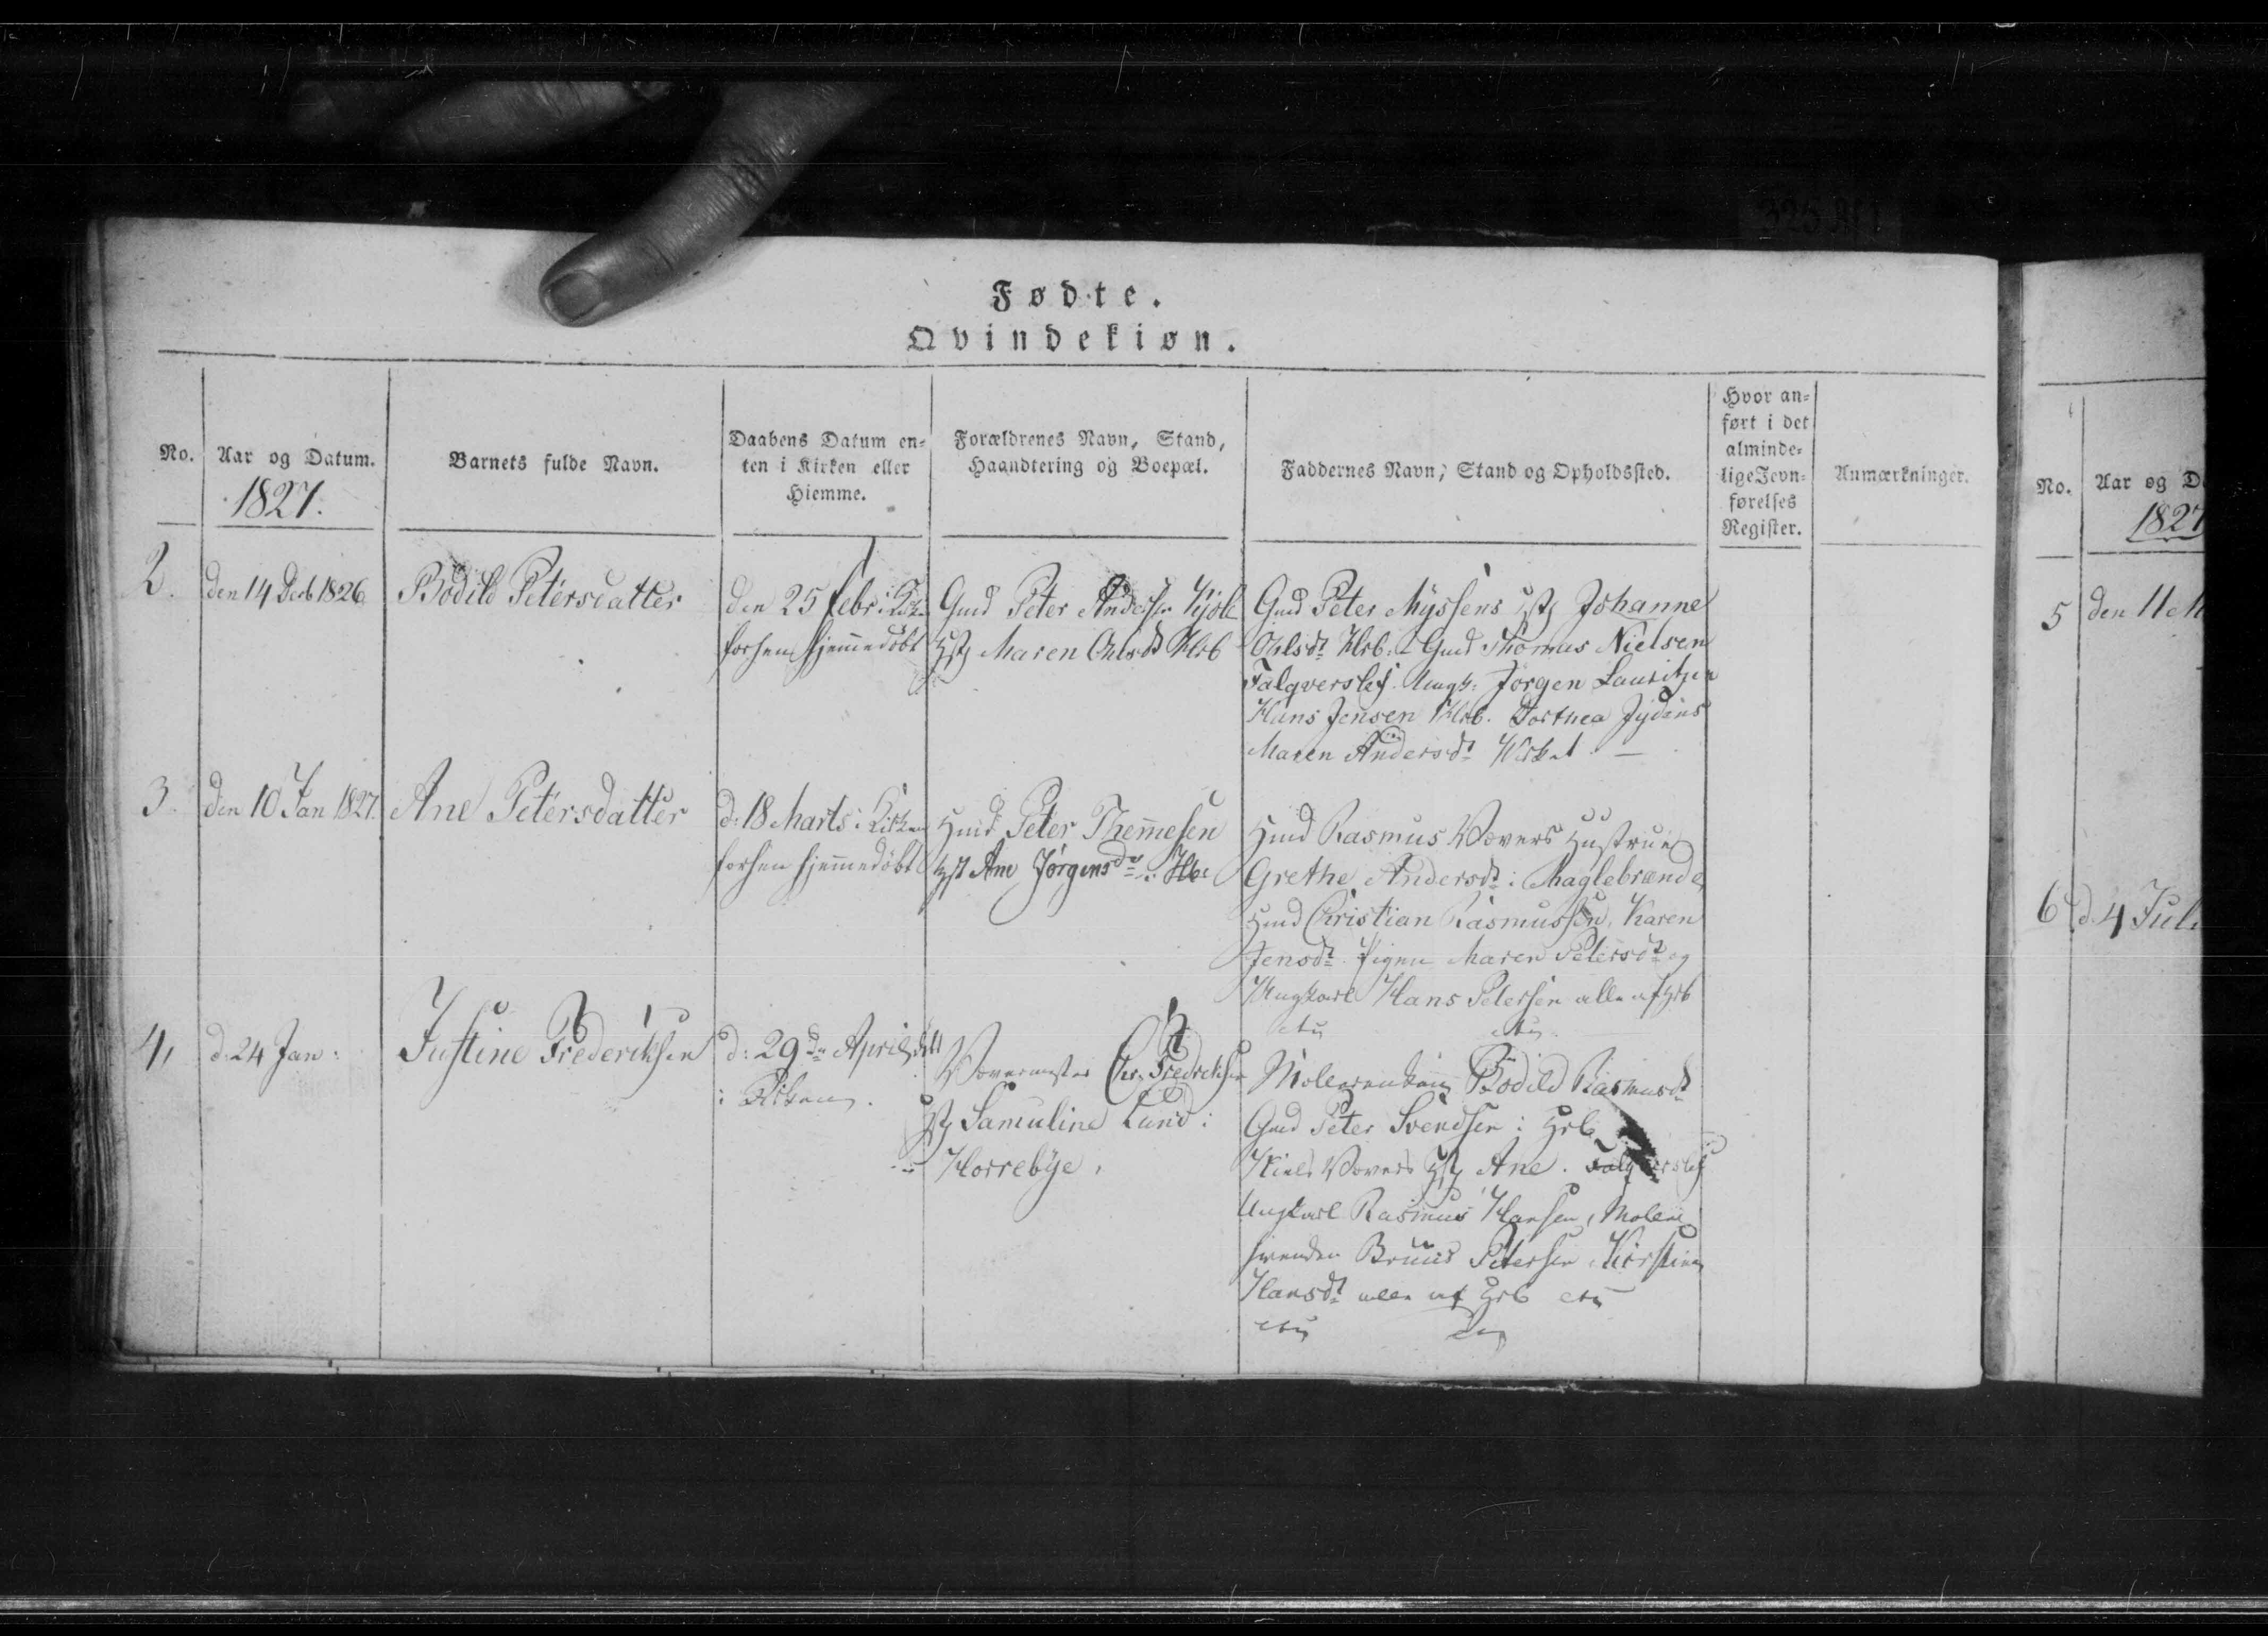 Fødte.
Qvindekiøn.
No.
Aar og Datum.
1827.
Barnets fulde Navn.
Daabens Datum en-
ten i Kirken eller
Hiemme.
Forældrenes Navn, Stand,
Haandtering og Boepæl.
Faddernes Navn, Stand og Opholdssted.
Hvor an-
ført i det
alminde-
lige Jevn-
førelses
Register.
Anmærkninger.
2.
den 14 Decb 1826
Bodild Petersdatter
den 25 febr i Kirk
forhen hjemedøbt
Gmd Peter Andersen
Maren Ohlsd Hrb
Gmd Peter Nyssens Johanne
Ohlsdt Hrb. Gmd Thomas Nielsen
Falqverslef. Ungk: Jørgen Lauritzen
Hans Jensen Hrb. Dorthea Jydens
Maren Andersdt
3.
den 10 Jan 1827.
Ane Petersdatter
d: 18 Marts i Kirken
forhen hjemedøbt
Hmd Peter Themesen
Ane Jørgensd
Hmd Rasmus Vævers Hustrue
Grethe Andersdt i Maglebrænde
Hmd Christian Rasmussen, Karen
Jensdt Pigen Maren Petersdt og
Ungkarl Hans Petersen alle af Hrb
4,
d. 24 Jan:
Justine Frederiksen
d: 29de April
i Kirken.
Chr. Fredreksen
Samuline Lund i
Horrebye.
Bodild Rasmusdt
Gmd Peter Svendsen i Hrb
Niels Vævers Ane. Falqverslef
Ungkarl Rasmus Hansen, Mølle
svenden Bruus Petersen, Kirstine
Hansdt alle af Hrb
No.
Aar og D
1827
5
den 11
6
d. 4 Juli